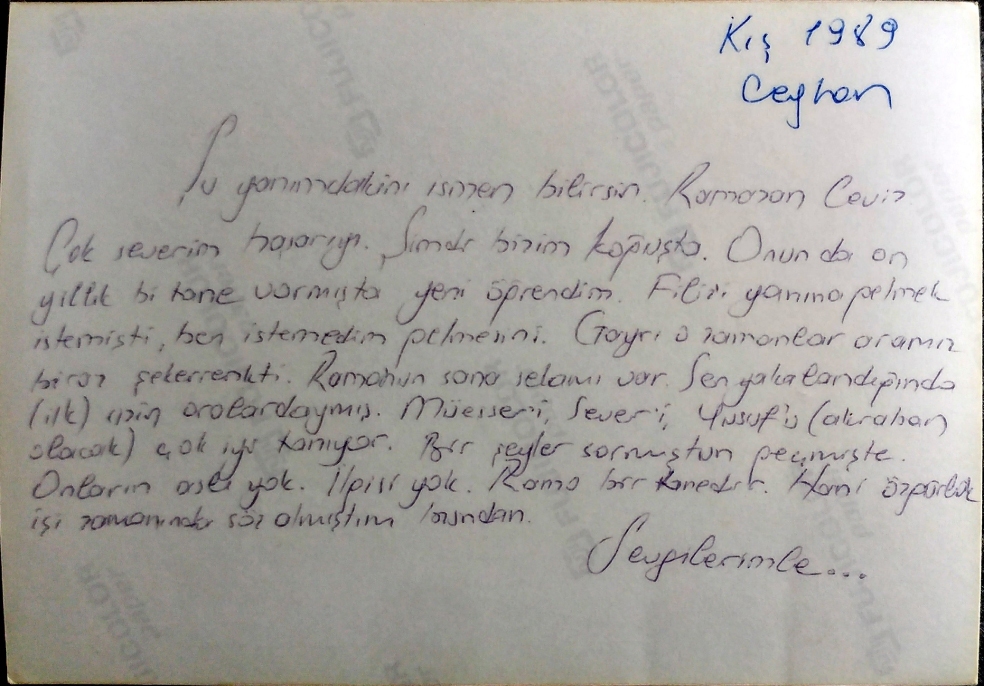 Kış 1989
Ceyhan
Şu yanımdakini ismen bilirsin. Ramazan Ceviz
Çok severim haşarıyı. Şimdi bizim koğuşta. Onun da on
yıllık bi tane varmışta yeni öğrendim. Filizi yanıma gelmek
istemişti, ben istemedim gelmesini. Gayri o zamanlar aramız
biraz şekerrenkti. Ramonun sana selamı var. Sen yakalandığında
(ilk) oralardaymış. Müeiser'i, Sever'i, Yusuf'u (akraban
olacak) çok iyi tanıyor. Bir şeyler sormuştun geçmişte.
Onların aslı yok. İlgisi yok. Ramo bir tanedir. Hani özgürlük
işi zamanında söz almıştım bundan.
Sevgilerimle...
FUJICOLOR
paper